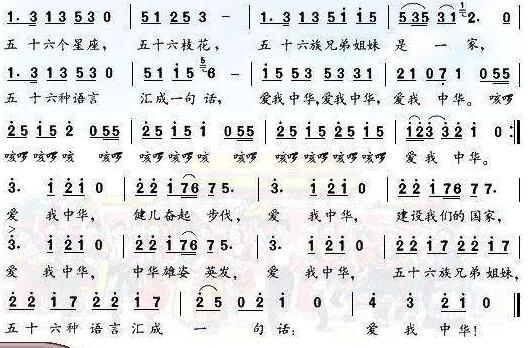 1. 3 1 3 5 3 0 | 5 1 2 5 3 - | 1. 3 1 3 5 i i 5 | 5 3 5 3 1 2. 0 |
五 十六个星座, 五十六枝花, 五 十六族兄弟姐妹 是 一 家,
1. 3 1 3 5 3 0 | 5 1 i 5 6 - | i 5 5 3 5 3 3 2 | 2 1 0 7 1 0 5 5 |
五 十六种语言 汇成一句 话, 爱我中华,爱我中华, 爱我 中华。 咳啰
2 5 i 5 2 0 5 5 | 2 5 i 5 2 0 5 5 | 2 5 2 5 i 0 5 5 | 2 5 2 5 i 0 | i 2 3 3 2 i 0 :|
咳啰 咳啰 咳 咳啰 咳啰 咳啰 咳 咳啰 咳啰 咳啰 咳 爱 我 中 华。
3. i 2 i 0 | 2 2 i 7 6 7 5. | 3. i 2 i 0 | 2 2 i 7 6 7 7. |
爱 我 中华, 健儿奋起 步伐, 爱 我 中华, 建设我们的 国家,
3. i 2 i 0 | 2 2 i 7 6 7 5. | 3. i 2 i 0 | 2 2 2 i 7 i 7 5 |
爱 我 中华, 中华雄姿 英发, 爱 我 中华, 五十六族兄弟姐妹,
2 2 i 7 2 2 i 7 | 2 5 0 2 i | 4 3 2 i 0 ‖
五 十 六 种 语 言 汇 成 一 句 话: 爱 我 中 华!